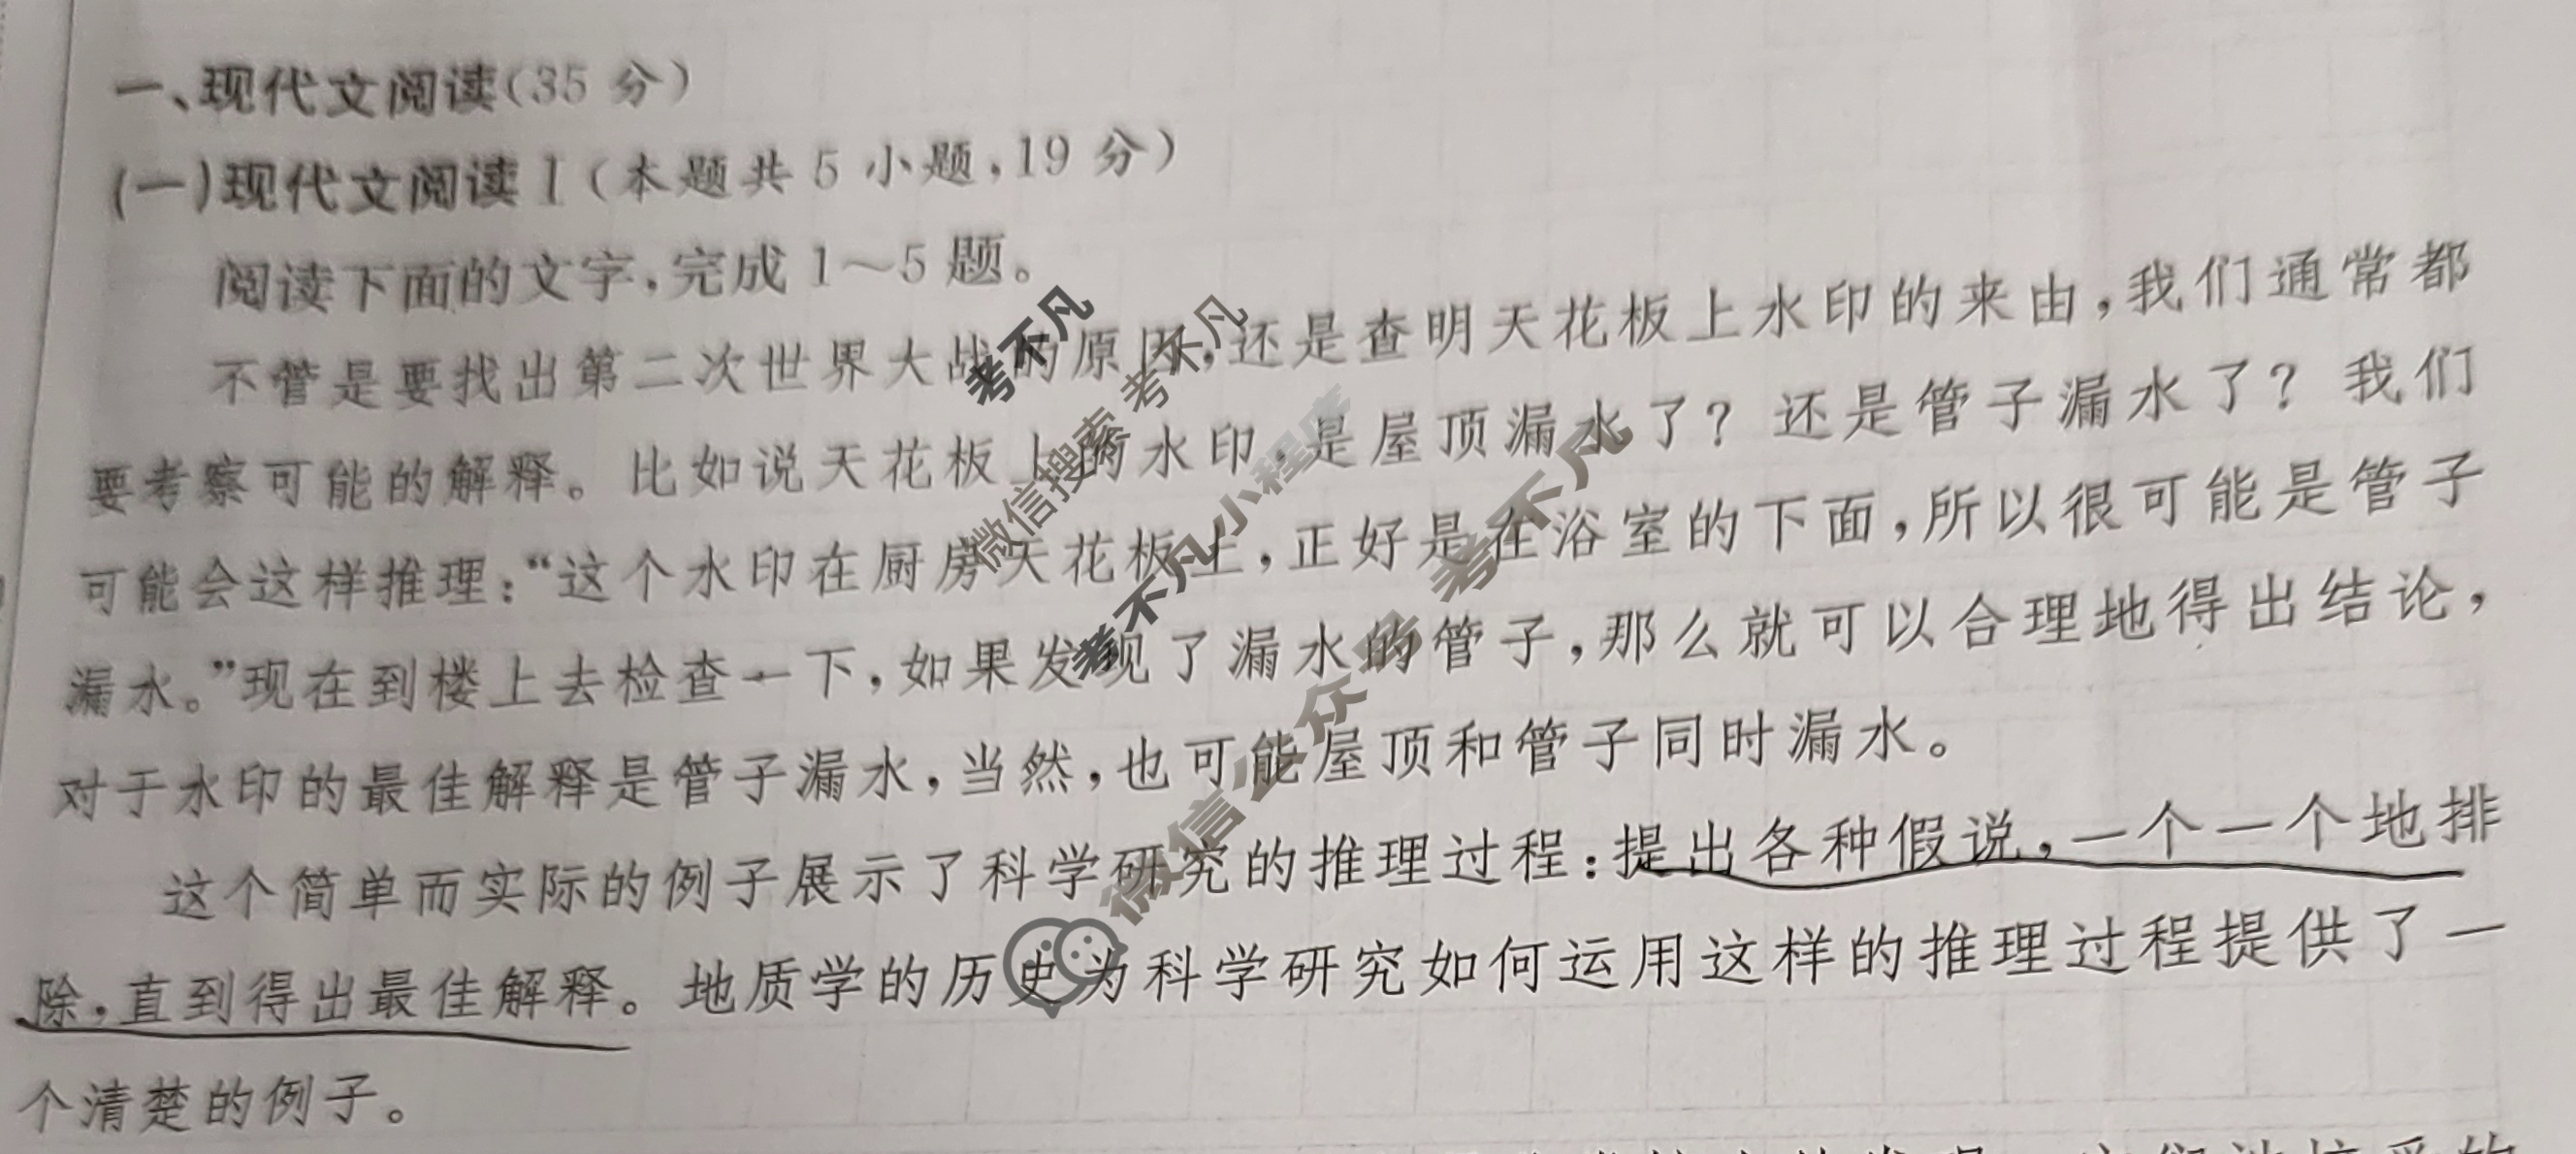 一、现代文阅读(35 分)
(一)现代文阅读 I (本题共 5 小题,19 分)
阅读下面的文字,完成 1～5 题。
不管是要找出第二次世界大战的原因,还是查明天花板上水印的来由,我们通常都
要考察可能的解释。比如说天花板上的水印,是屋顶漏水了? 还是管子漏水了? 我们
可能会这样推理:“这个水印在厨房天花板上,正好是在浴室的下面,所以很可能是管子
漏水。”现在到楼上去检查一下,如果发现了漏水的管子,那么就可以合理地得出结论,
对于水印的最佳解释是管子漏水,当然,也可能屋顶和管子同时漏水。
这个简单而实际的例子展示了科学研究的推理过程:提出各种假说,一个一个地排
除,直到得出最佳解释。地质学的历史为科学研究如何运用这样的推理过程提供了一
个清楚的例子。
考不凡
微信搜索 考不凡
考不凡小程序
微信公众号 考不凡